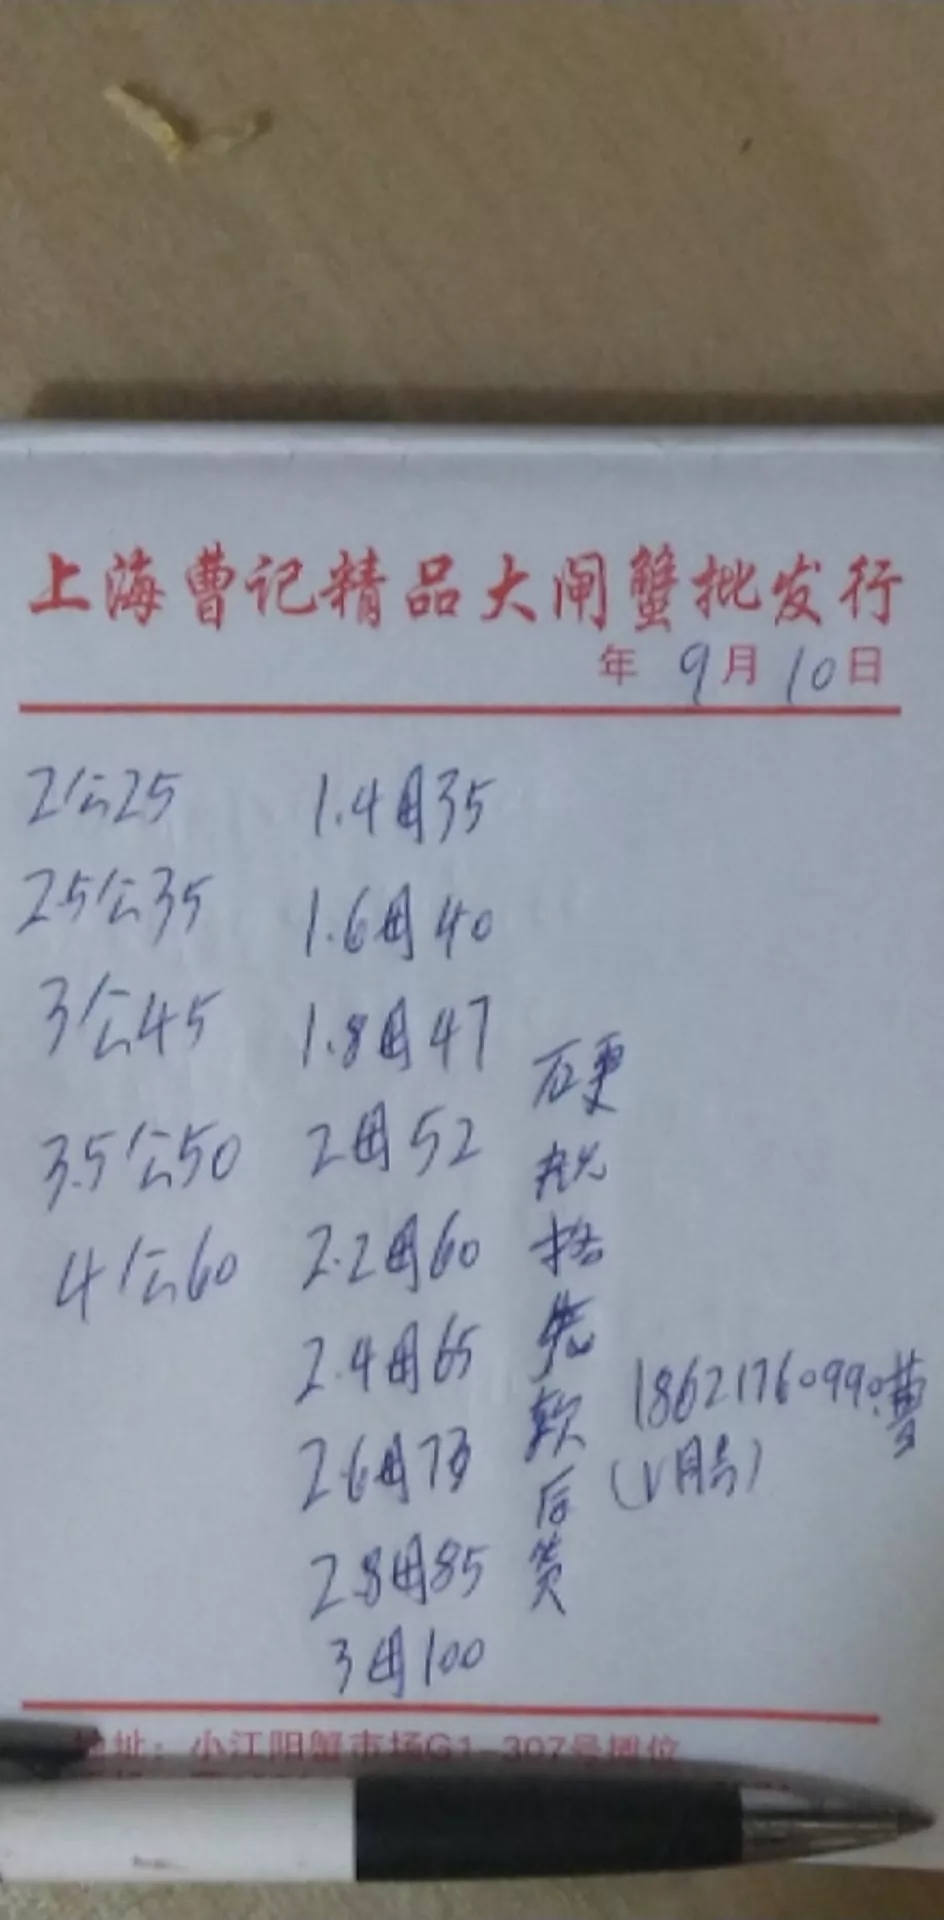 上海曹记精品大闸蟹批发行
年 9月 10日
2公25
2.5公35
3公45
3.5公50
4公60
1.4母35
1.6母40
1.8母47
2母52
2.2母60
2.4母65
2.6母73
2.8母85
3母100
硬
脱
括
先
软
后
黄
18621760990曹
(V同号)
地址：小江阳蟹市场G1-307号摊位